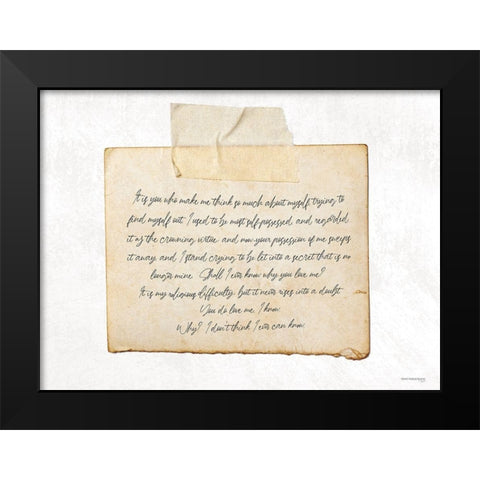 It is you who make me think so much about myself, trying to
find myself out. I used to be most self-possessed, and regarded
it as the crowning virtue, and now your possession of me sweeps
it away, and I stand crying to be let into a secret that is no
longer mine. Shall I ever know why you love me?
It is my religious difficulty; but it never rises into a doubt.
You do love me, I know.
Why? I don't think I ever can know.